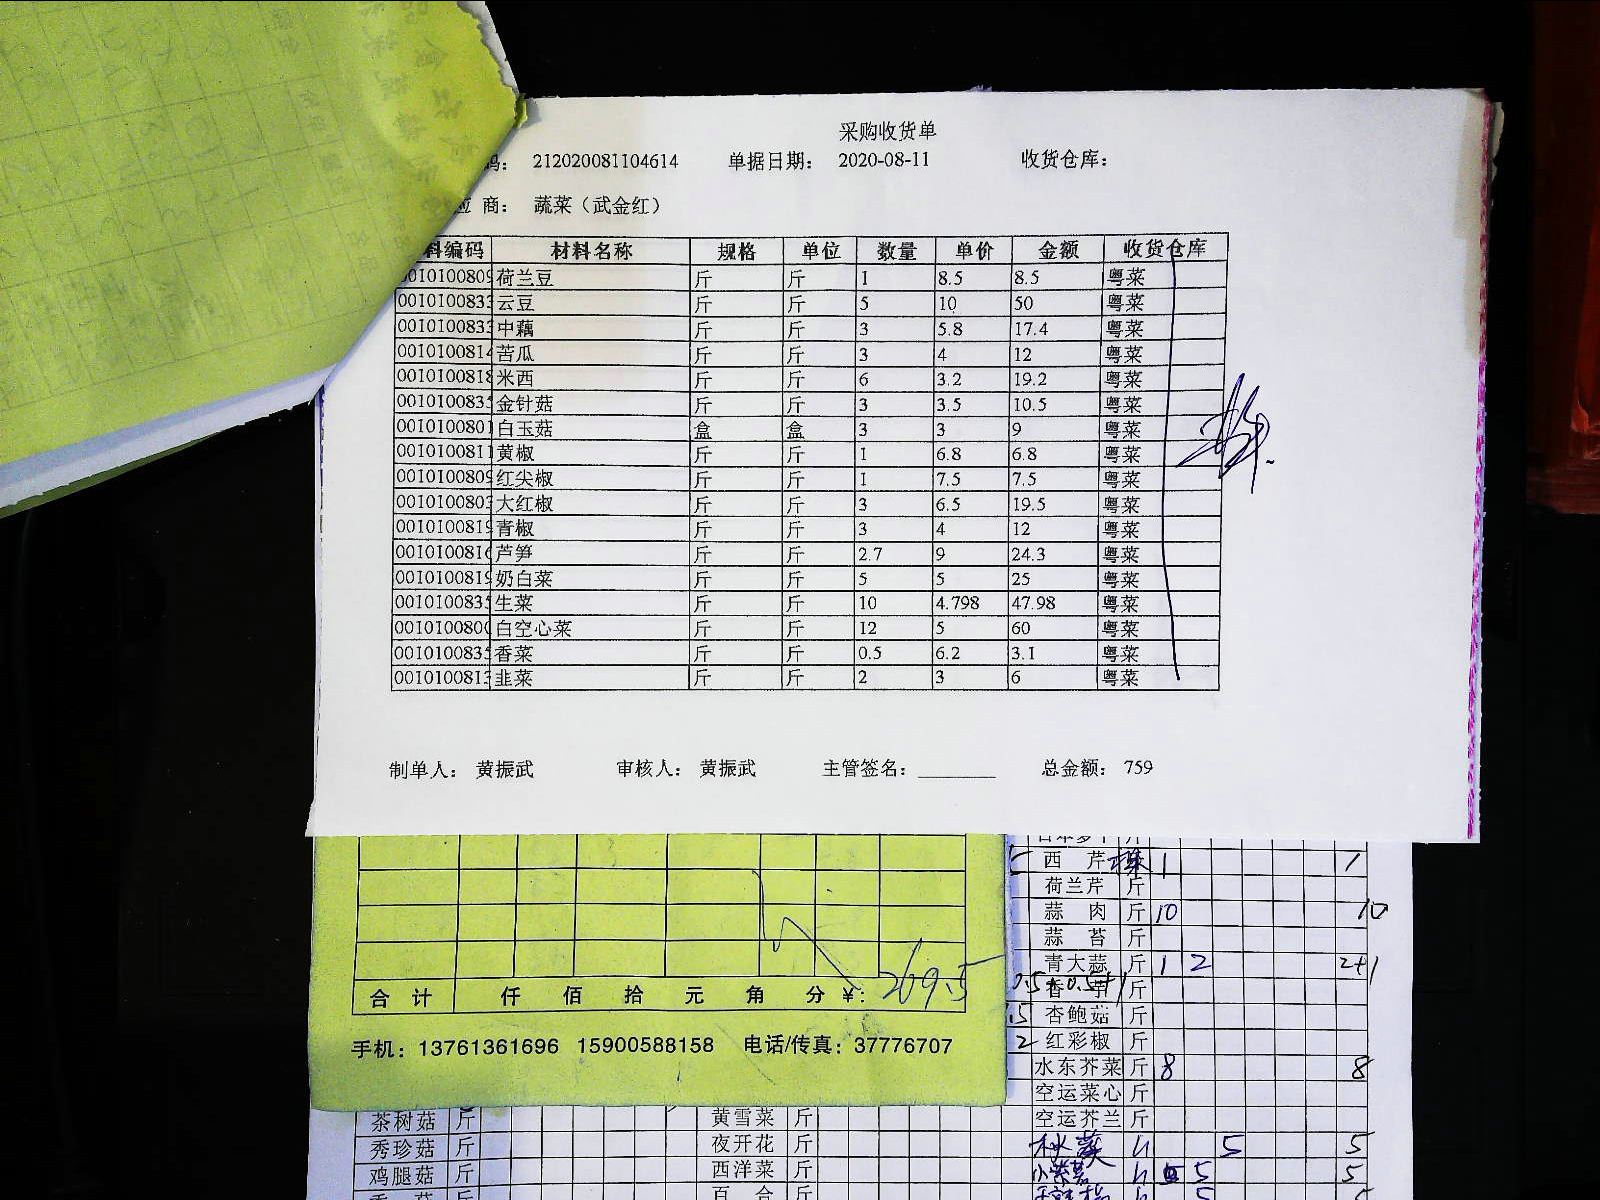 采购收货单
码： 212020081104614 单据日期： 2020-08-11 收货仓库：
应 商： 蔬菜（武金红）
料编码 材料名称 规格 单位 数量 单价 金额 收货仓库
001010080 荷兰豆 斤 斤 1 8.5 8.5 粤菜
001010083 云豆 斤 斤 5 10 50 粤菜
001010083 中藕 斤 斤 3 5.8 17.4 粤菜
001010081 苦瓜 斤 斤 3 4 12 粤菜
001010081 米西 斤 斤 6 3.2 19.2 粤菜
001010083 金针菇 斤 斤 3 3.5 10.5 粤菜
001010080 白玉菇 盒 盒 3 3 9 粤菜
001010081 黄椒 斤 斤 1 6.8 6.8 粤菜
001010080 红尖椒 斤 斤 1 7.5 7.5 粤菜
001010080 大红椒 斤 斤 3 6.5 19.5 粤菜
001010081 青椒 斤 斤 3 4 12 粤菜
001010081 芦笋 斤 斤 2.7 9 24.3 粤菜
001010081 奶白菜 斤 斤 5 5 25 粤菜
001010083 生菜 斤 斤 10 4.798 47.98 粤菜
001010080 白空心菜 斤 斤 12 5 60 粤菜
001010083 香菜 斤 斤 0.5 6.2 3.1 粤菜
001010081 韭菜 斤 斤 2 3 6 粤菜
制单人： 黄振武 审核人： 黄振武 主管签名：________ 总金额： 759
西 芹 1 1
荷兰芹 斤
蒜 肉 斤 10 10
蒜 苔 斤
青大蒜 斤 1 2 2+1
斤
杏鲍菇 斤
2 红彩椒 斤
水东芥菜 斤 8 8
空运菜心 斤
空运芥兰 斤
合 计 仟 佰 拾 元 角 分 ¥: 269.5
手机：13761361696 15900588158 电话/传真：37776707
茶树菇 斤 黄雪菜 斤
秀珍菇 斤 夜开花 斤 5 5
鸡腿菇 斤 西洋菜 斤 5 5
百 合 斤